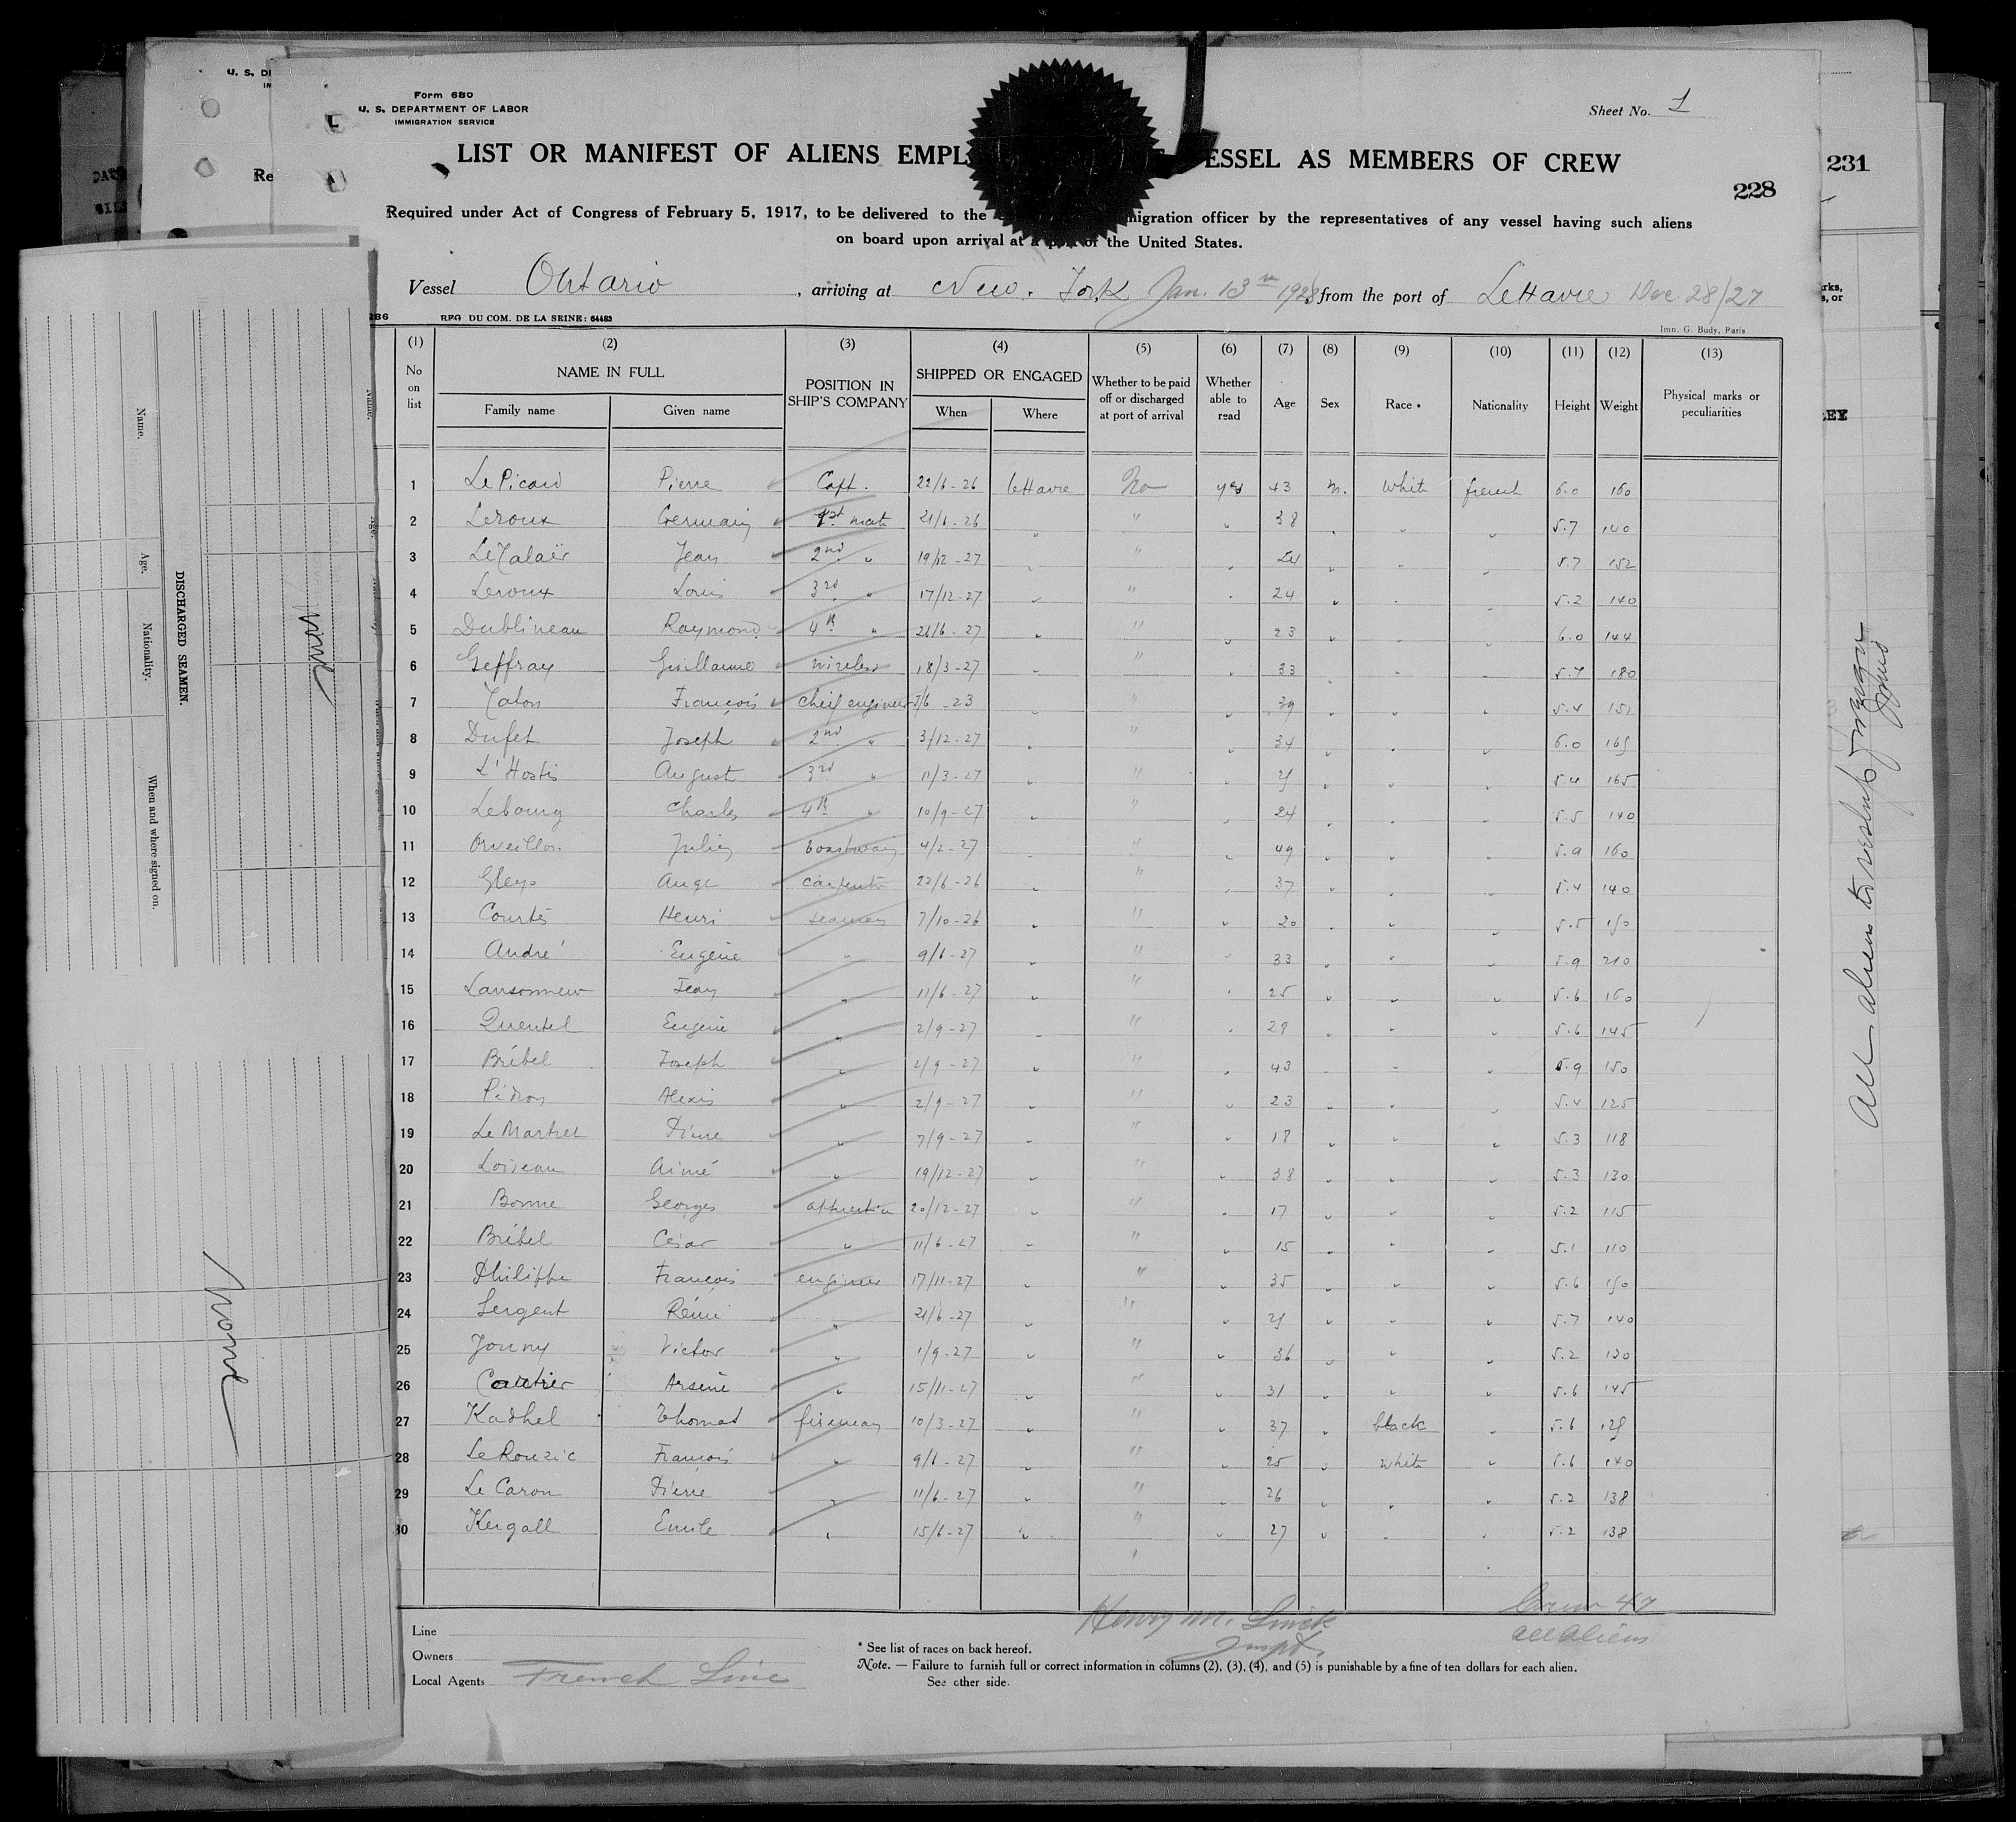 Form 680
U. S. DEPARTMENT OF LABOR
IMMIGRATION SERVICE
Sheet No. 1
LIST OR MANIFEST OF ALIENS EMPL ESSEL AS MEMBERS OF CREW
231
228
Required under Act of Congress of February 5, 1917, to be delivered to the migration officer by the representatives of any vessel having such aliens
on board upon arrival at a port of the United States.
Vessel Ontario, arriving at New York Jan. 13 1928 from the port of Le Havre Dec. 28/27
REG DU COM. DE LA SEINE: 64483
Imp. G. Budy, Paris
(1) (2) (3) (4) (5) (6) (7) (8) (9) (10) (11) (12) (13)
No on list NAME IN FULL Family name Given name POSITION IN SHIP'S COMPANY SHIPPED OR ENGAGED When Where Whether to be paid off or discharged at port of arrival Whether able to read Age Sex Race * Nationality Height Weight Physical marks or peculiarities
1 Le Picard Pierre Capt. 22/6-26 le Havre No yes 43 m. White french 6.0 160
2 Leroux Germain 1st mate 21/6-26 " " 38 " " " 5.7 140
3 LeTalaër Jean 2nd " 19/12-27 " " " 24 " " " 5.7 152
4 Leroux Louis 3rd " 17/12-27 " " " 24 " " " 5.2 140
5 Dublineau Raymond 4th " 21/6-27 " " " 23 " " " 6.0 144
6 Geffray Guillaume wireless 18/3-27 " " " 33 " " " 5.7 180
7 Talon François cheif engineer 5/6-23 " " " 39 " " " 5.4 151
8 Dufet Joseph 2nd " 3/12-27 " " " 34 " " " 6.0 165
9 L'Hostis August 3rd " 11/3-27 " " " " " " 5.4 165
10 Lebourg Charles 4th " 10/9-27 " " " 24 " " " 5.5 140
11 Orveillon Julien 4/2-27 " " " 49 " " " 5.9 160
12 Gleyo Ange carpenter 22/6-26 " " " 37 " " " 5.4 140
13 Courtès Henri seaman 7/10-26 " " " 20 " " " 5.5 150
14 André Eugène " 9/6-27 " " " 33 " " " 5.9 210
15 Lansonneur Jean " 11/6-27 " " " 25 " " " 5.6 160
16 Quentel Eugène " 2/9-27 " " " 29 " " " 5.6 145
17 Brébel Joseph " 2/9-27 " " " 43 " " " 5.9 150
18 Pédron Alexis " 2/9-27 " " " 23 " " " 5.4 125
19 Le Martret Pierre " 7/9-27 " " " 18 " " " 5.3 118
20 Loiseau Aimé " 19/12-27 " " " 38 " " " 5.3 130
21 Bonne Georges apprentice 20/12-27 " " " 17 " " " 5.2 115
22 Brébel César " 11/6-27 " " " 15 " " " 5.1 110
23 Philippe François engineer 17/11-27 " " " 35 " " " 5.6 150
24 Sergent Rémi " 21/6-27 " " " " " " 5.7 140
25 Jouny Victor " 1/9-27 " " " 36 " " " 5.2 130
26 Cartier Arsène " 15/11-27 " " " 31 " " " 5.6 145
27 Kadhel Thomas fireman 10/3-27 " " " 37 " black " 5.6
28 Le Rouzic François " 9/6-27 " " " 25 " white " 5.6 140
29 Le Caron Pierre " 11/6-27 " " " 26 " " " 5.2 138
30 Kergall Emile " 15/6-27 " " " 27 " " " 5.2 138
Line
Owners
Local Agents French Line
Henry M. Linick
Inspt.
Crew 47
all aliens
* See list of races on back hereof.
Note. — Failure to furnish full or correct information in columns (2), (3), (4), and (5) is punishable by a fine of ten dollars for each alien.
See other side.
DISCHARGED SEAMEN.
Name. Age. Nationality. When and where signed on.
None
None
All aliens to reship foreign